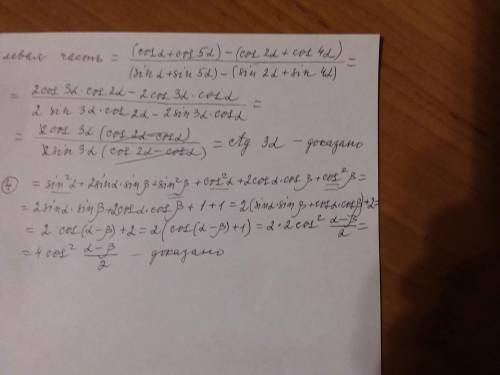 левая часть = ((cosα+cos5α) − (cos2α+cos4α)) / ((sinα+sin5α) − (sin2α+sin4α)) =
= (2cos3α·cos2α − 2cos3α·cosα) / (2 sin3α·cos2α − 2sin3α·cosα) =
= (2cos3α (cos2α−cosα)) / (2sin3α (cos2α−cosα)) = ctg 3α – доказано
④ = sin²α+2sinα·sinβ+sin²β+cos²α+2cosα·cosβ+cos²β=
= 2sinα·sinβ+2cosα·cosβ + 1+1 = 2(sinα sinβ+cosα·cosβ)+2=
= 2·cos(α−β)+2 = 2(cos(α−β)+1) = 2·2cos² (α−β)/2 =
= 4cos² (α−β)/2 – доказано